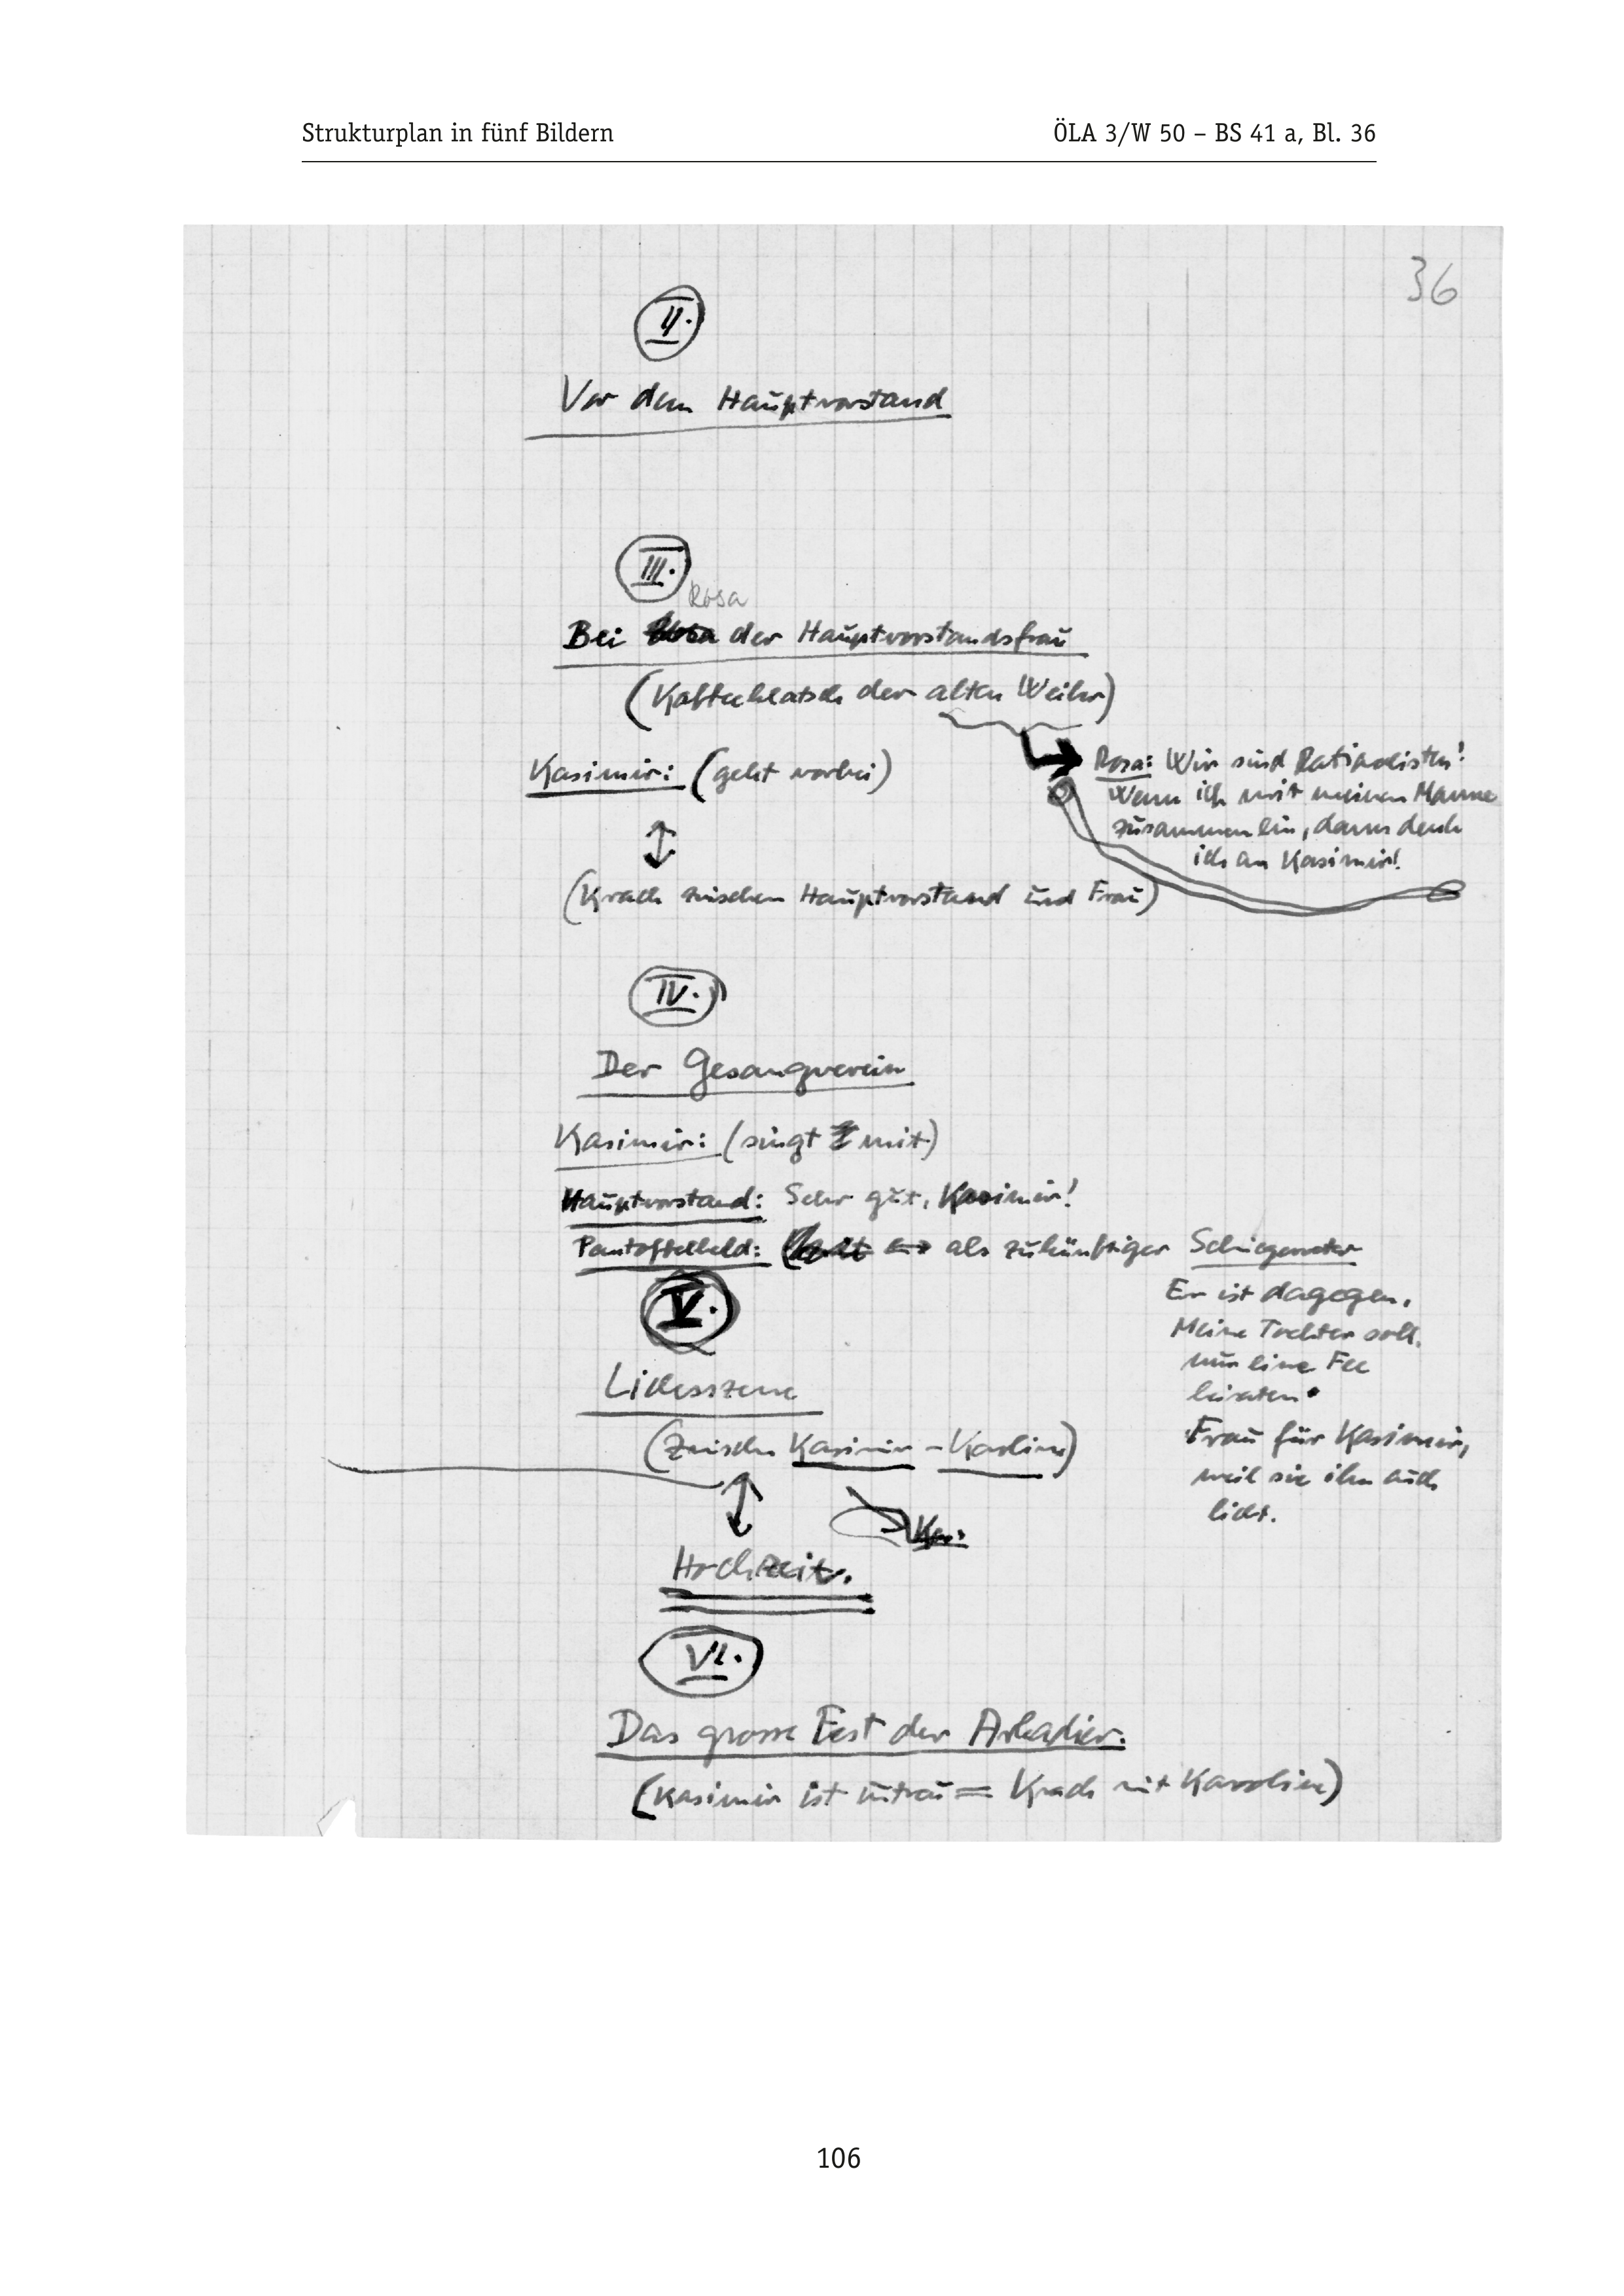 Strukturplan in fünf Bildern
ÖLA 3/W 50 – BS 41 a, Bl. 36
36
II.
Vor dem Hauptvorstand
III.
Rosa
Bei Rosa der Hauptvorstandsfrau
(Kaffeeklatsch der alten Weiber)
Kasimir: (geht vorbei)
Rosa: Wir sind
Wenn ich mit meinem Manne
zusammen bin, dann denk
ich an Kasimir!
(Krach zwischen Hauptvorstand und Frau)
IV.
Der Gesangverein
Kasimir: (singt mit)
Hauptvorstand: Sehr gut, Kasimir!
Pantoffelheld: als zukünftiger Schwiegervater
Er ist dagegen.
Meine Tochter soll
nur eine Fee
heiraten.
Frau für Kasimir,
weil sie ihn auch
liebt.
V.
Liebesszene
(Zwischen Kasimir – Karoline)
Kas:
Hochzeit.
VI.
Das grosse Fest der Arkadier.
(Kasimir ist untreu = Krach mit Karoline)
106